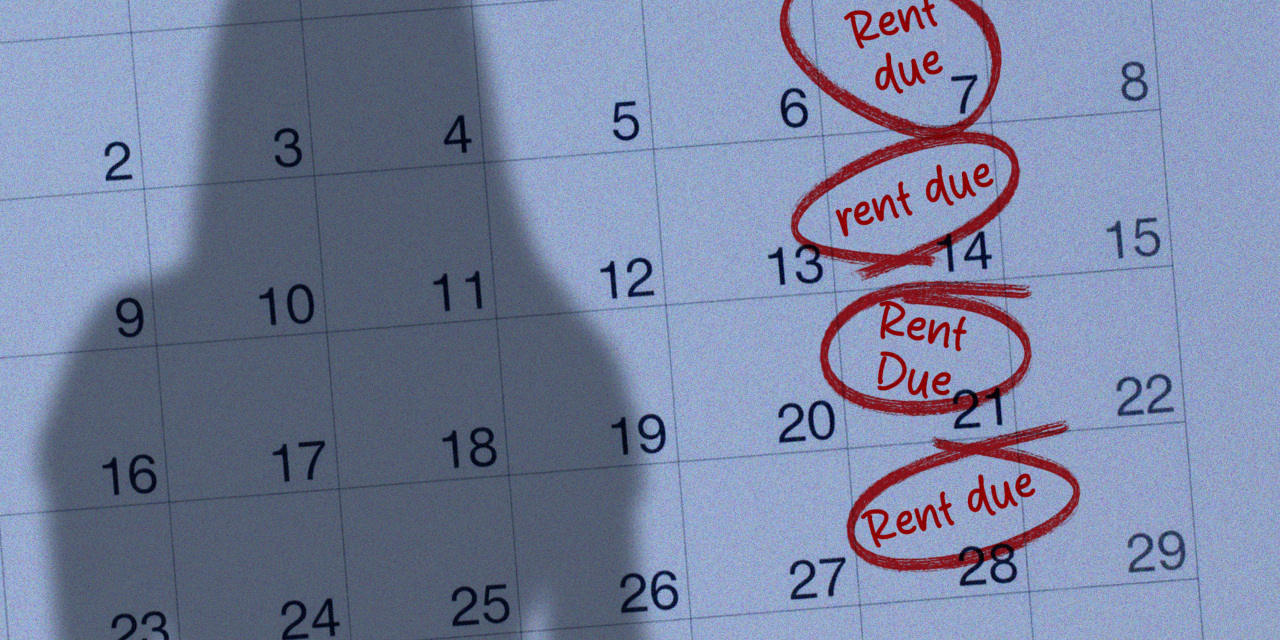 Rent
due
2 3 4 5 6 7 8
rent due
9 10 11 12 13 14 15
Rent
Due
16 17 18 19 20 21 22
Rent due
23 24 25 26 27 28 29